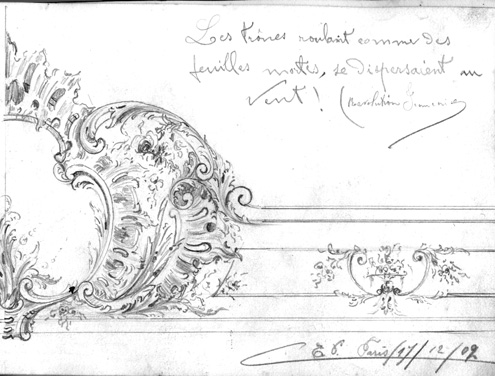 Les trônes roulant comme des
feuilles mortes, se dispersaient au
vent ! (
Paris/17/12/09